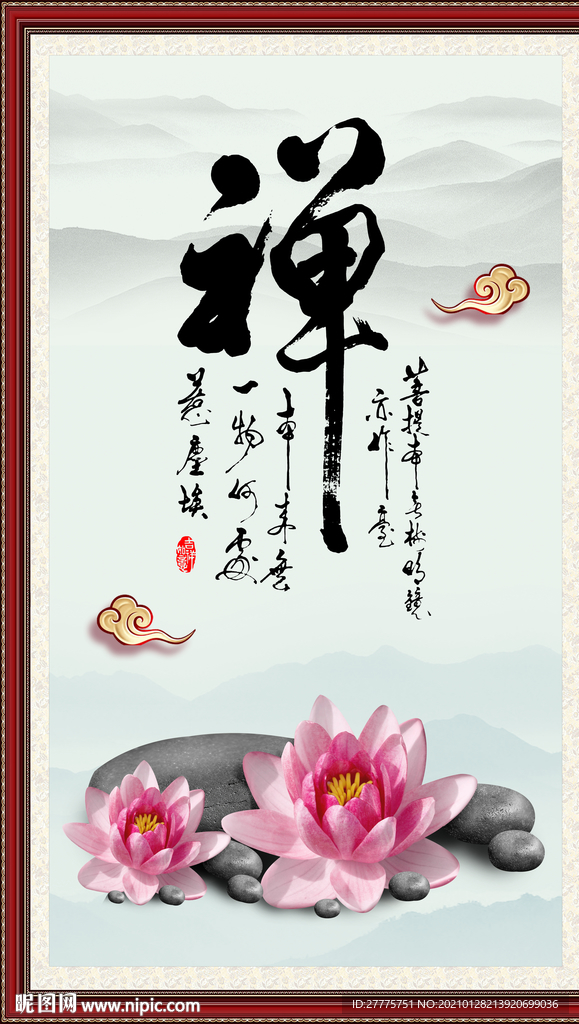 禪
菩提本无樹明鏡
亦非臺
本来無
一物何處
惹塵埃
吉祥如意
昵图网 www.nipic.com
ID:27775751 NO:20210128213920699036